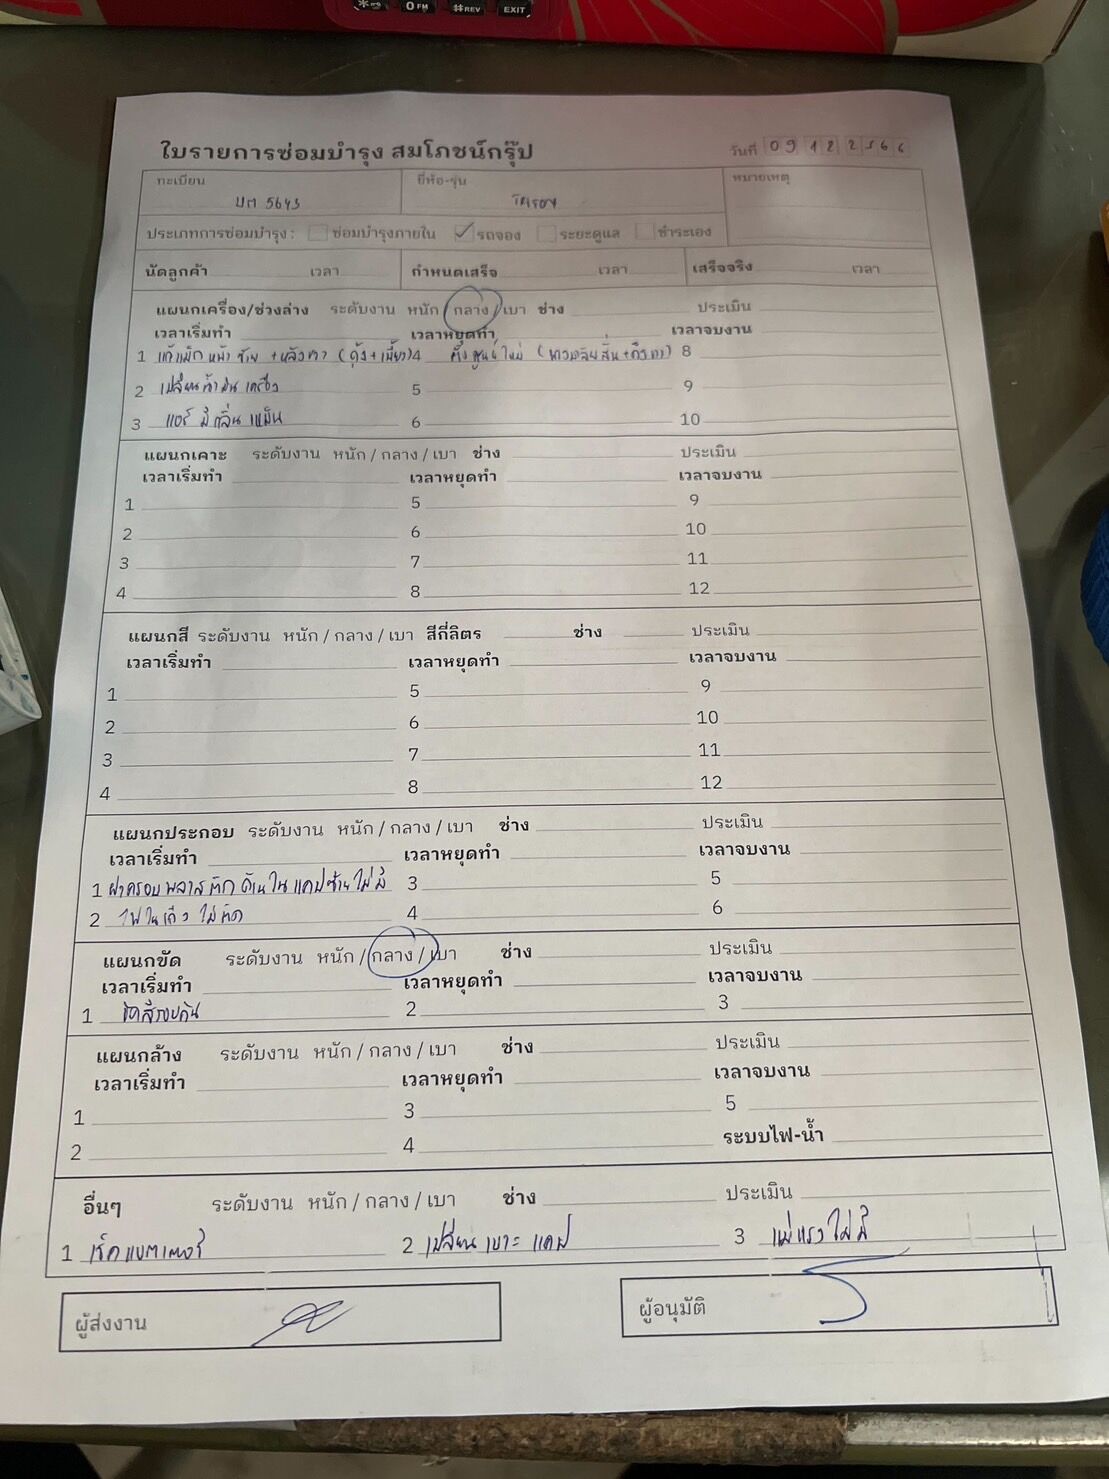 *
0 FM
#REV
EXIT
ใบรายการซ่อมบำรุง สมโภชน์กรุ๊ป
วันที่ 09 12 2566
ทะเบียน
ยี่ห้อ-รุ่น
หมายเหตุ
5643
ประเภทการซ่อมบำรุง : ซ่อมบำรุงภายใน ✓ รถจอง ระยะดูแล ชำระเอง
นัดลูกค้า เวลา กำหนดเสร็จ เวลา เสร็จจริง เวลา
แผนกเครื่อง/ช่วงล่าง ระดับงาน หนัก / กลาง / เบา ช่าง ประเมิน
เวลาเริ่มทำ เวลาหยุดทำ เวลาจบงาน
1 หน้าซ้าย + หลังขวา 4 ตั้งศูนย์ใหม่ 8
2 เปลี่ยน เครื่อง 5 9
3 แอร์ มีกลิ่น เหม็น 6 10
แผนกเคาะ ระดับงาน หนัก / กลาง / เบา ช่าง ประเมิน
เวลาเริ่มทำ เวลาหยุดทำ เวลาจบงาน
1 5 9
2 6 10
3 7 11
4 8 12
แผนกสี ระดับงาน หนัก / กลาง / เบา สีกี่ลิตร ช่าง ประเมิน
เวลาเริ่มทำ เวลาหยุดทำ เวลาจบงาน
1 5 9
2 6 10
3 7 11
4 8 12
แผนกประกอบ ระดับงาน หนัก / กลาง / เบา ช่าง ประเมิน
เวลาเริ่มทำ เวลาหยุดทำ เวลาจบงาน
1 ฝาครอบพลาสติก ด้านใน แคปซ้ายไม่มี 3 5
2 ไฟในเก๋ง ไม่ติด 4 6
แผนกขัด ระดับงาน หนัก / กลาง / เบา ช่าง ประเมิน
เวลาเริ่มทำ เวลาหยุดทำ เวลาจบงาน
1 ขัดสีรอบคัน 2 3
แผนกล้าง ระดับงาน หนัก / กลาง / เบา ช่าง ประเมิน
เวลาเริ่มทำ เวลาหยุดทำ เวลาจบงาน
1 3 5
2 4 ระบบไฟ-น้ำ
อื่นๆ ระดับงาน หนัก / กลาง / เบา ช่าง ประเมิน
1 เช็คแบตเตอรี่ 2 เปลี่ยน เบาะ แคป 3 แม่แรง ไม่มี
ผู้ส่งงาน
ผู้อนุมัติ